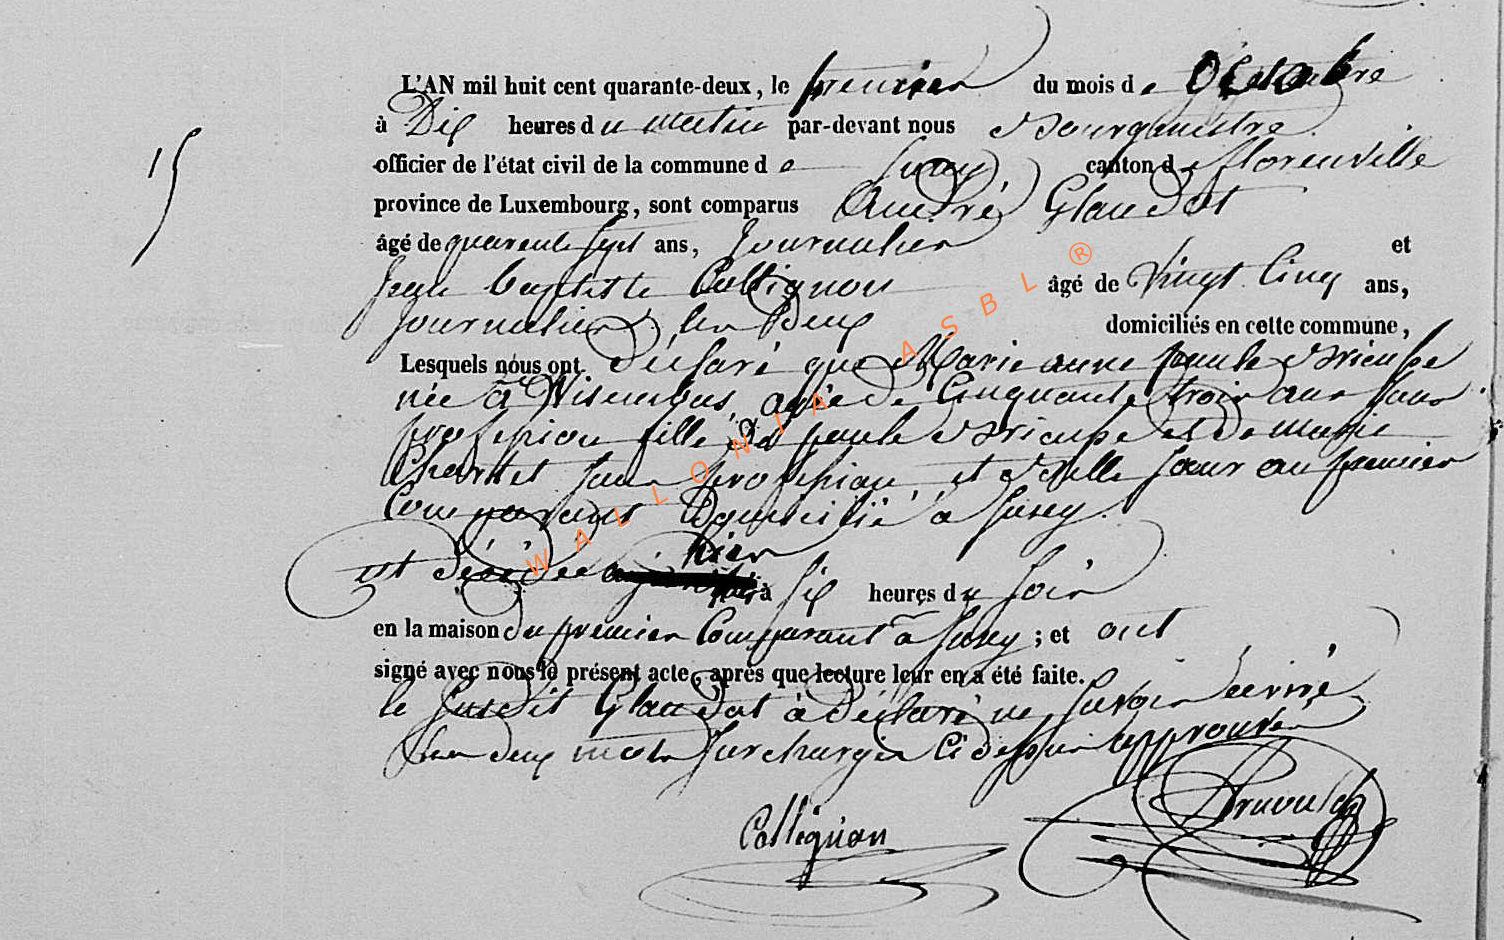 L'AN mil huit cent quarante-deux, le premier du mois de Octobre
à Dix heures du matin par-devant nous Bourgmestre
15
officier de l'état civil de la commune de Suxy canton de Florenville
province de Luxembourg, sont comparus André Glaudot
âgé de quarente sept ans, Journalier et
Jean Baptiste Collignon âgé de Vingt Cinq ans,
Journalier les Deux domiciliés en cette commune,
Lesquels nous ont déclaré que Marie anne paule
née à agée de Cinquante trois ans sans
profession fille de paule et de marie
sans profession et Belle sœur au premier
Comparant Domicilié à Suxy.
est décédée hier
à six heures du soir
en la maison du premier Comparant à Suxy ; et ont
signé avec nous le présent acte, après que lecture leur en a été faite.
le susdit Glaudot à déclaré ne savoir écrire
les deux mots surchargés Ci dessus approuvés
Collignon
WALLONIA ASBL ®